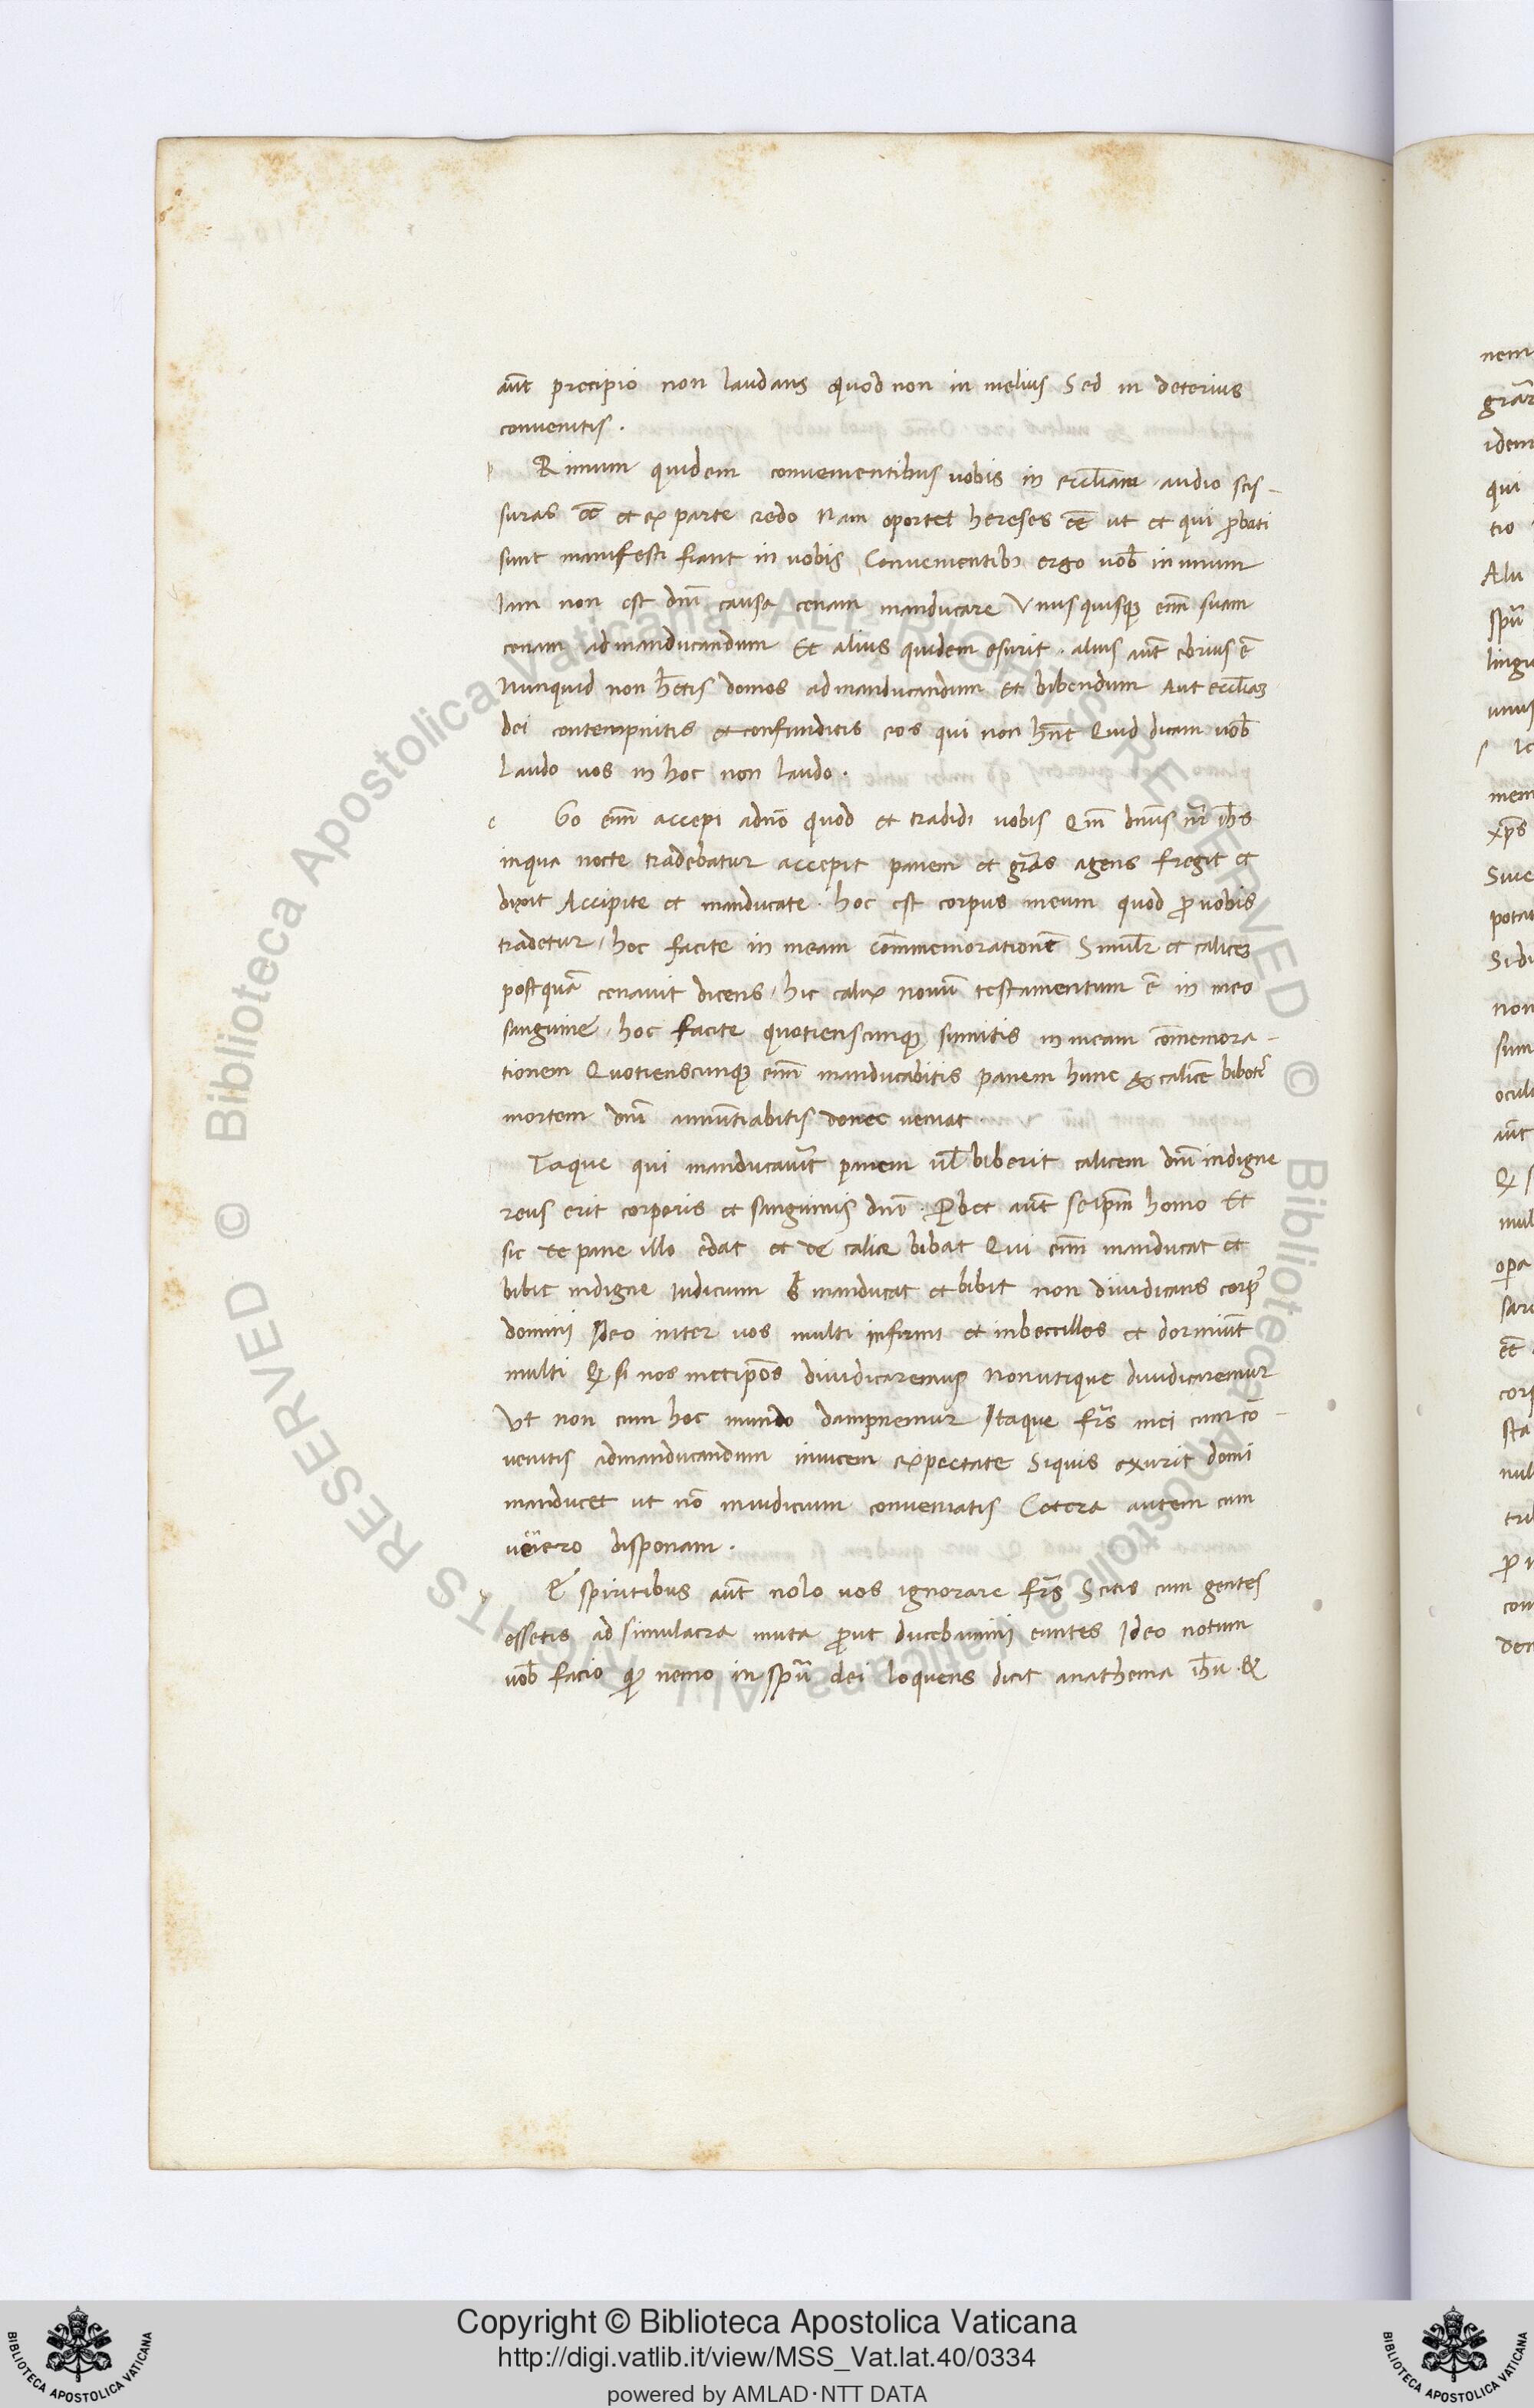 aūt precipio non laudans quod non in melius Sed in deterius
conuenitis .
p Rimum quidem conuenientibus uobis in eccl̄iam audio scis-
suras eē et ex parte credo Nam oportet hereses eē ut et qui ꝓbati
sunt manifesti fiant in uobis Conuenientibꝫ ergo uob̄ in unum
Iam non est dn̄i causa cenam manducare Vnusquisqꝫ enī suam
cenam ad manducandum Et alius quidem esurit . alius aūt ebrius ē
Nunquid non h̄etis domos ad manducandum et bibendum Aut eccl̄iaꝫ
dei contempnitis et confunditis eos qui non hn̄t Quid dicam uob̄
Laudo uos in hoc non laudo .
e Go enī accepi a dn̄o quod et tradidi uobis Qm̄ dn̄us nr̄ ih̄s
in qua nocte tradebatur accepit panem et gr̄as agens fregit et
dixit Accipite et manducate . hoc est corpus meum quod ꝓ uobis
tradetur / hoc facite in meam com̄memorationē Simil̄r et caliceꝫ
postquā cenauit dicens / hic calix nouū testamentum ē in meo
sanguine / hoc facite quotienscunqꝫ sumitis in meam com̄emora-
tionem Quotienscunqꝫ enī manducabitis panem hunc & calicē bibetis
mortem dn̄i annuntiabitis donec ueniat .
Taque qui manducauīt panem ul̄ biberit calicem dn̄i indigne
reus erit corporis et sanguinis dn̄i . Ꝓbet aūt seip̄m homo Et
sic de pane illo edat et de calice bibat Qui enī manducat et
bibit indigne iudicium s̄ manducat et bibit non diiudicans corpꝰ
domini Ideo inter uos multi infirmi et inbecilles et dormiūt
multi Qꝫ si nos metip̄os diiudicaremus Non utique diiudicaremur
Vt non cum hoc mundo dampnemur Itaque fr̄s mei cum cō-
uenitis ad manducandum inuicem expectate Siquis exurit domi
manducet ut nō in iudicium conueniatis Cetera autem cum
uenero disponam .
E spiritibus aūt nolo uos ignorare fr̄s Scitis cum gentes
essetis ad simulacra muta ꝓut ducebamini euntes Ideo notum
uob̄ facio qꝫ nemo in spū dei loquens dicit anathema ih̄u . &
nem
grār
idem
qui
tio
Alii
spū
lingu
unus
mem
xp̄s
Siue
potat
non
sum
ocul
aūt
mul
opa
eē
corp
sta
nul
tri
con
den
© Biblioteca Apostolica Vaticana ALL RIGHTS RESERVED
© Biblioteca Apostolica Vaticana ALL RIGHTS RESERVED
BIBLIOTECA APOSTOLICA VATICANA
Copyright © Biblioteca Apostolica Vaticana
http://digi.vatlib.it/view/MSS_Vat.lat.40/0334
powered by AMLAD·NTT DATA
BIBLIOTECA APOSTOLICA VATICANA